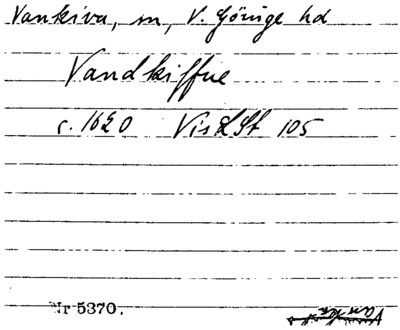 Vankiva, sn, V. Göinge hd
Vandkiffue
c. 1620 VisLSt 105
Nr 5370.